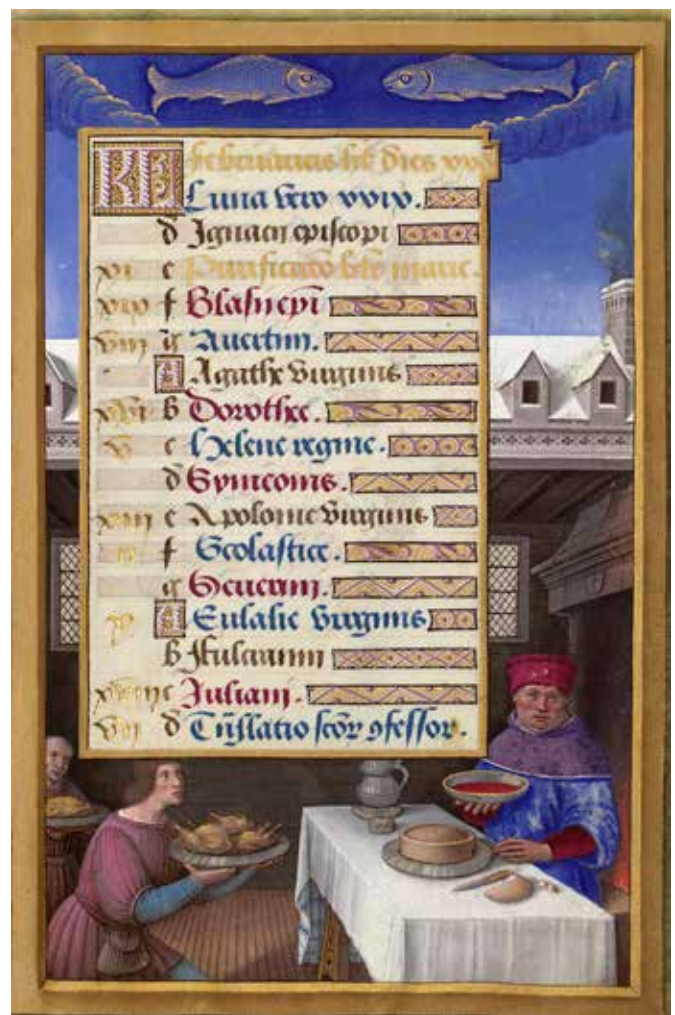 KL februarius ht dies xxvii
Luna vero xxix.
d Ignacii episcopi
xi e Purificatio bte marie.
xix f Blasii epi
viii g Auertini.
A Agathe virginis
xvi b Dorothee.
v c Helene regine.
d Symeonis.
xiii e Apolonie virginis
ii f Scolastice.
g Seuerini.
x A Eulalie virginis
b
xviii c Juliani.
vii d Tnslatio scor 9fessor.